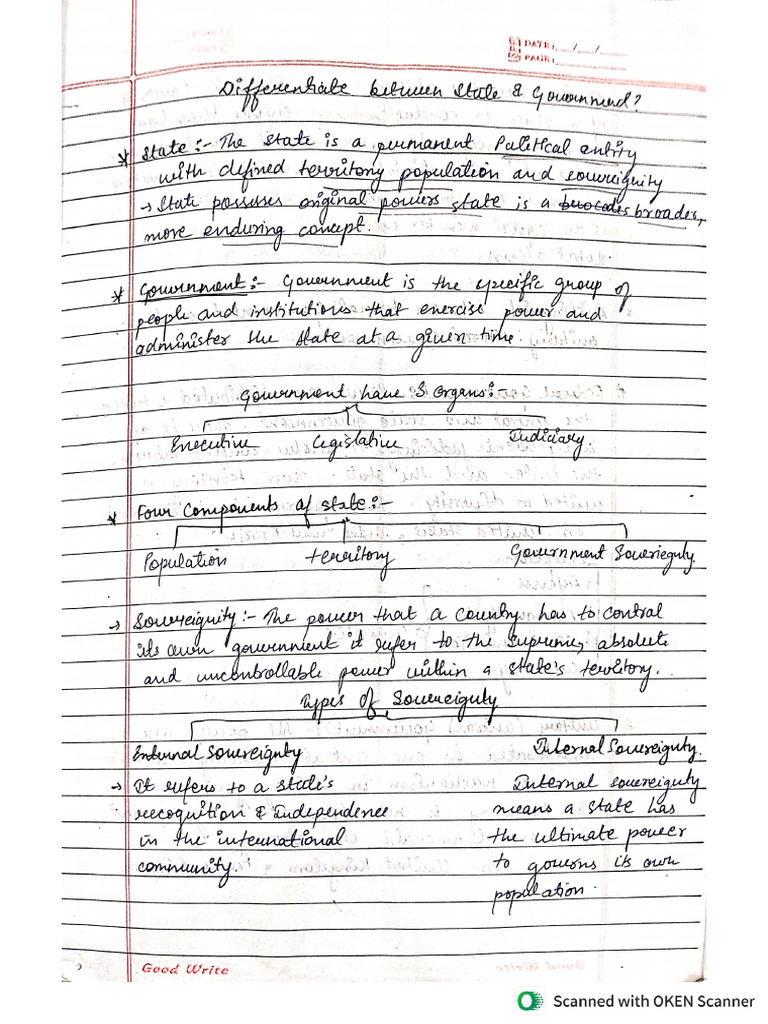 DATE: __/__/__
PAGE:
Differentiate between State & Government?
* State :- The state is a permanent Political entity
with defined territory population and sovereignity
→ State possesses original powers state is a broader,
more enduring concept.
* Government :- Government is the specific group of
people and institutions that exercise power and
administer the state at a given time.
Government have 3 organs:
Executive Legislative Judiciary.
* Four Components of state :-
Population territory Government Soveriegnty.
→ Sovereignity :- The power that a country has to control
its own government it refer to the supreme, absolute
and uncontrollable power within a state's territory.
Types of Sovereignty
External Sovereignty Internal Sovereignty.
→ It refers to a state's Internal sovereignty
recognition & Independence means a state has
in the international the ultimate power
community. to governs its own
population.
Good Write
Scanned with OKEN Scanner